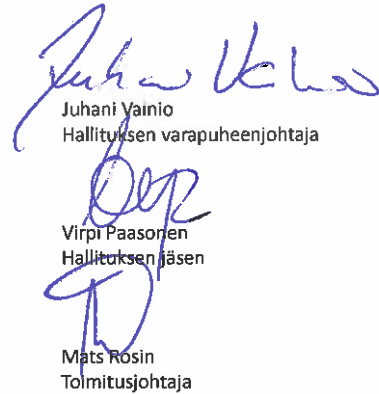 Juhani Vainio
Hallituksen varapuheenjohtaja
Virpi Paasonen
Hallituksen jäsen
Mats Rosin
Toimitusjohtaja